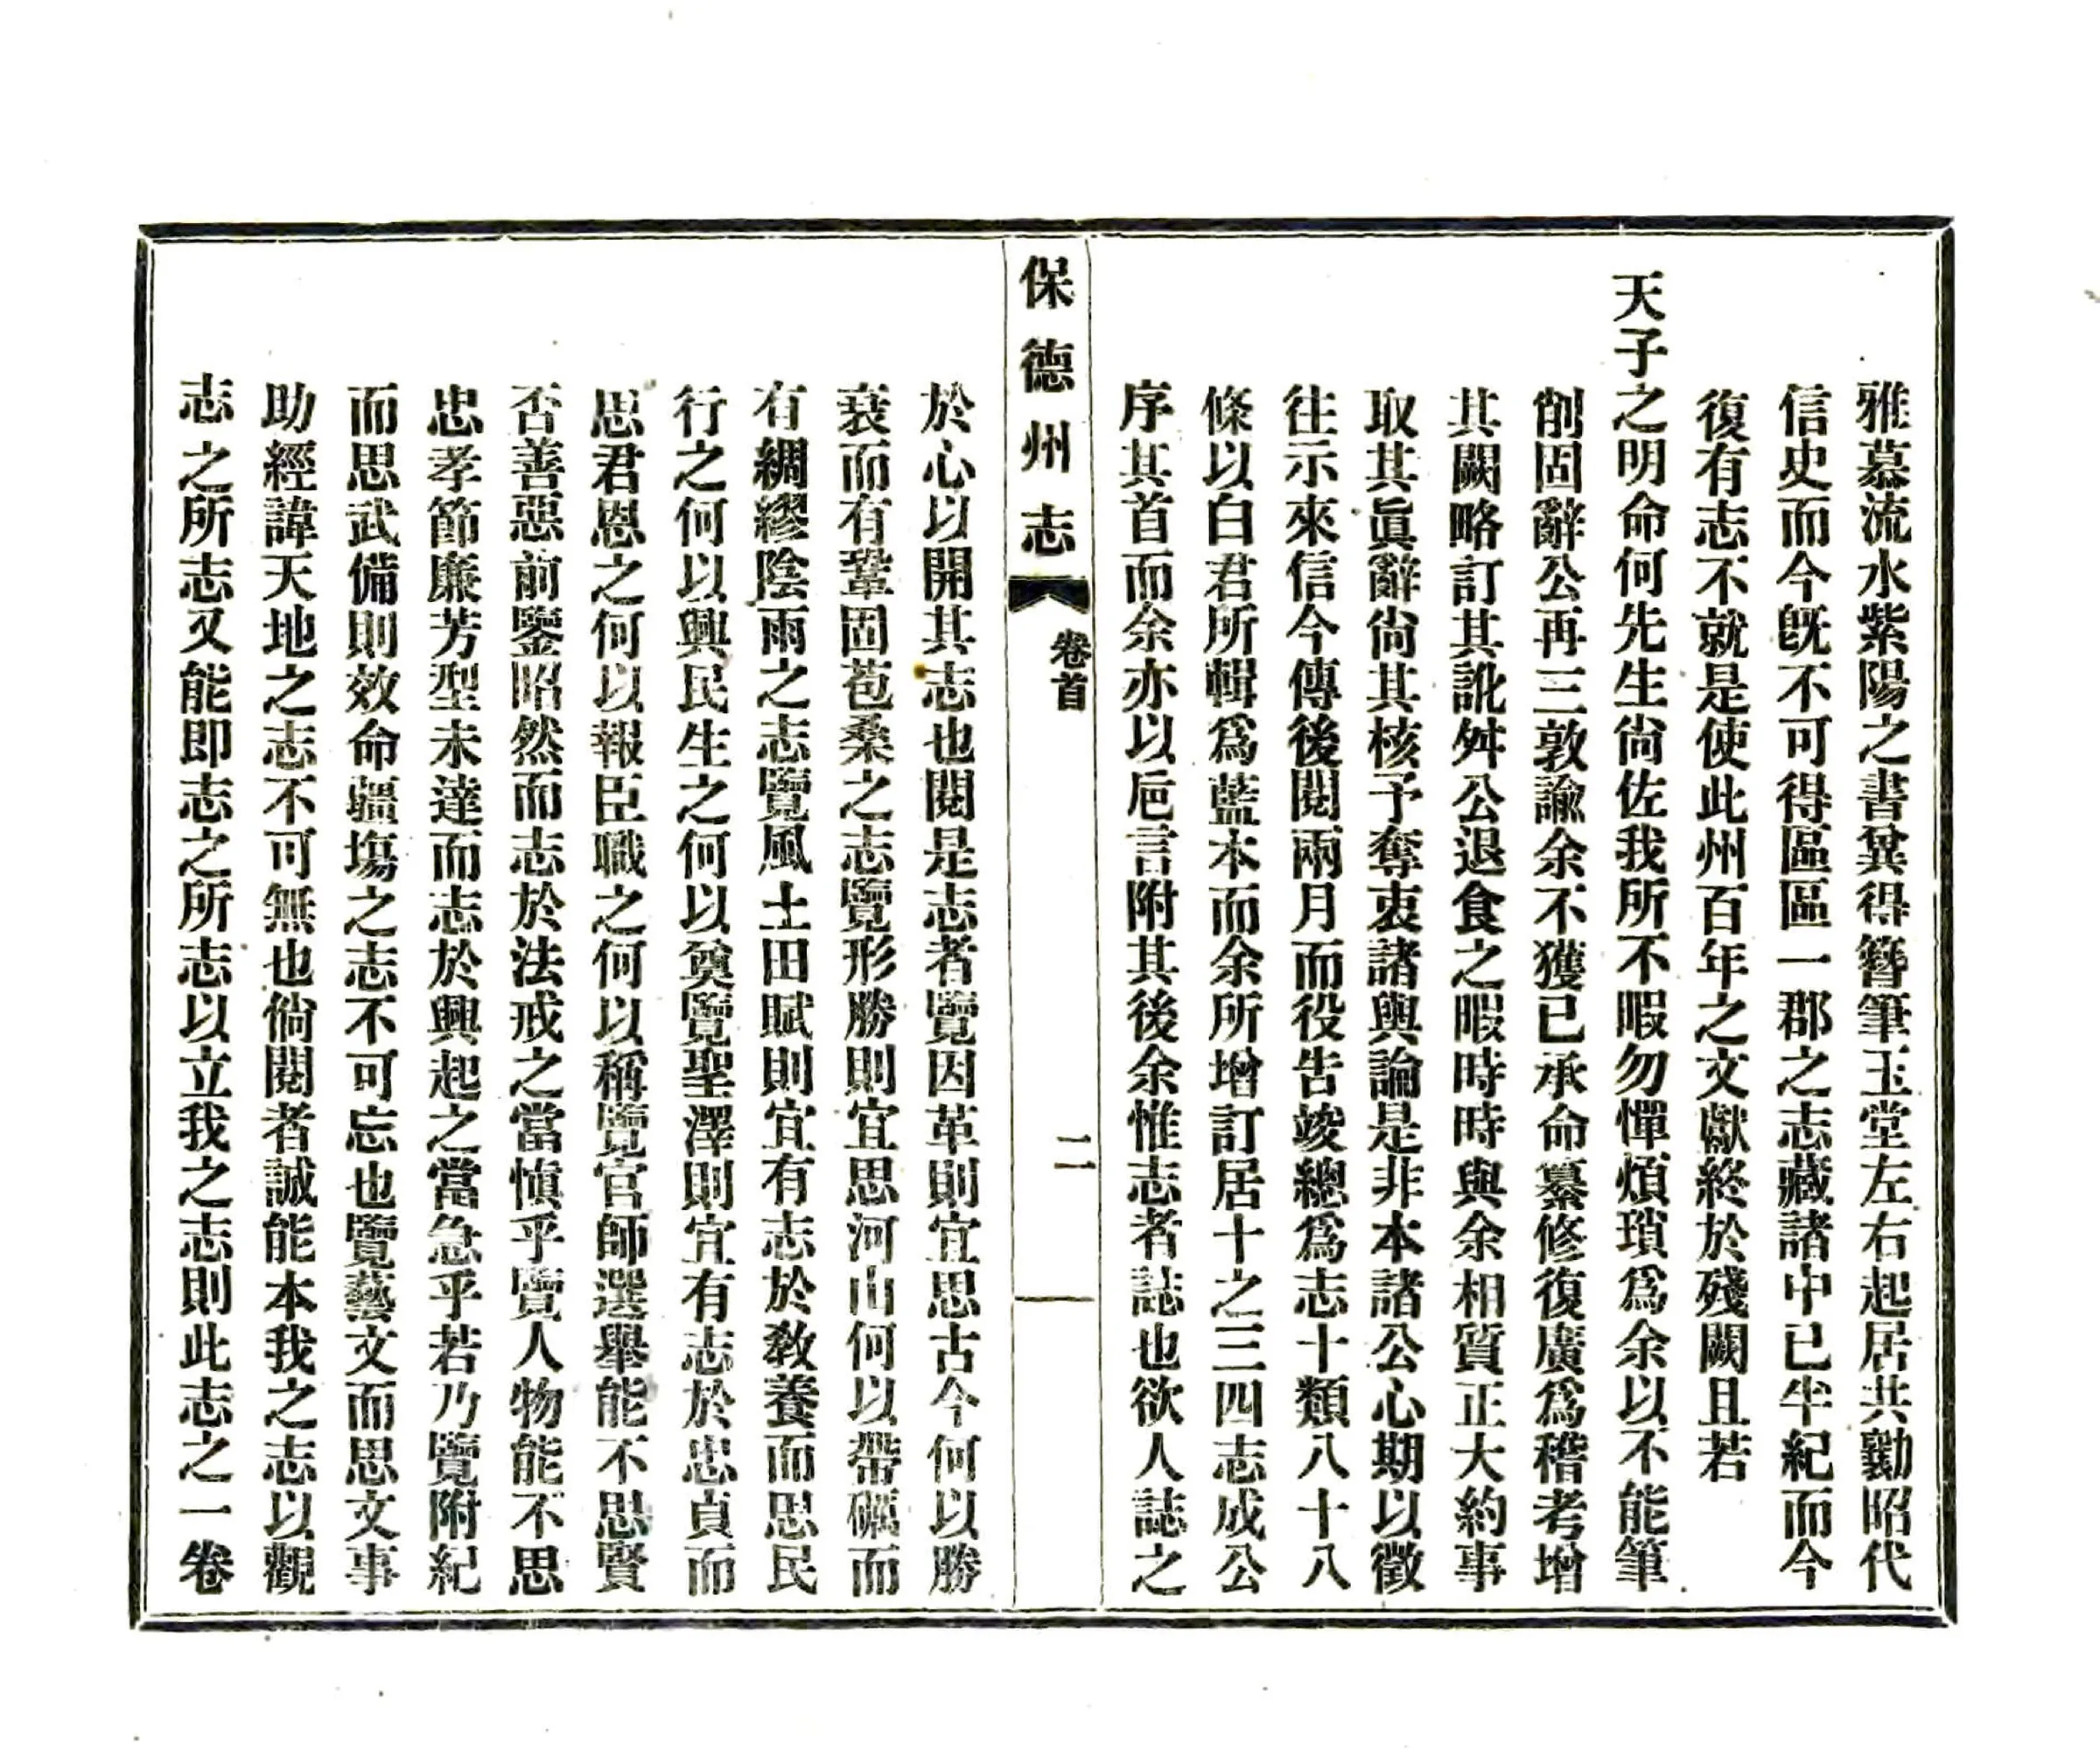 雅慕流水紫陽之書冀得簪筆玉堂左右起居共勷昭代
信史而今既不可得區區一郡之志藏諸中已半紀而今
復有志不就是使此州百年之文獻終於殘闕且若
天子之明命何先生尙佐我所不暇勿憚煩瑣爲余以不能筆
削固辭公再三敦諭余不獲已承命纂修復廣爲稽考增
其闕略訂其訛舛公退食之暇時時與余相質正大約事
取其眞辭尙其核予奪衷諸輿論是非本諸公心期以徵
往示來信今傳後閱兩月而役告竣總爲志十類八十八
條以白君所輯爲藍本而余所增訂居十之三四志成公
序其首而余亦以巵言附其後余惟志者誌也欲人誌之
保德州志
卷首
二
於心以開其志也閱是志者覽因革則宜思古今何以勝
衰而有鞏固苞桑之志覽形勝則宜思河山何以帶礪而
有綢繆陰雨之志覽風土田賦則宜有志於敎養而思民
行之何以興民生之何以奠覽聖澤則宜有志於忠貞而
思君恩之何以報臣職之何以稱覽官師選舉能不思賢
否善惡前鑒昭然而志於法戒之當愼乎覽人物能不思
忠孝節廉芳型未達而志於興起之當急乎若乃覽附紀
而思武備則效命疆塲之志不可忘也覽藝文而思文事
助經諱天地之志不可無也倘閱者誠能本我之志以觀
志之所志又能即志之所志以立我之志則此志之一卷